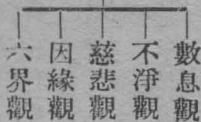 數息觀
不淨觀
慈悲觀
因緣觀
六界觀